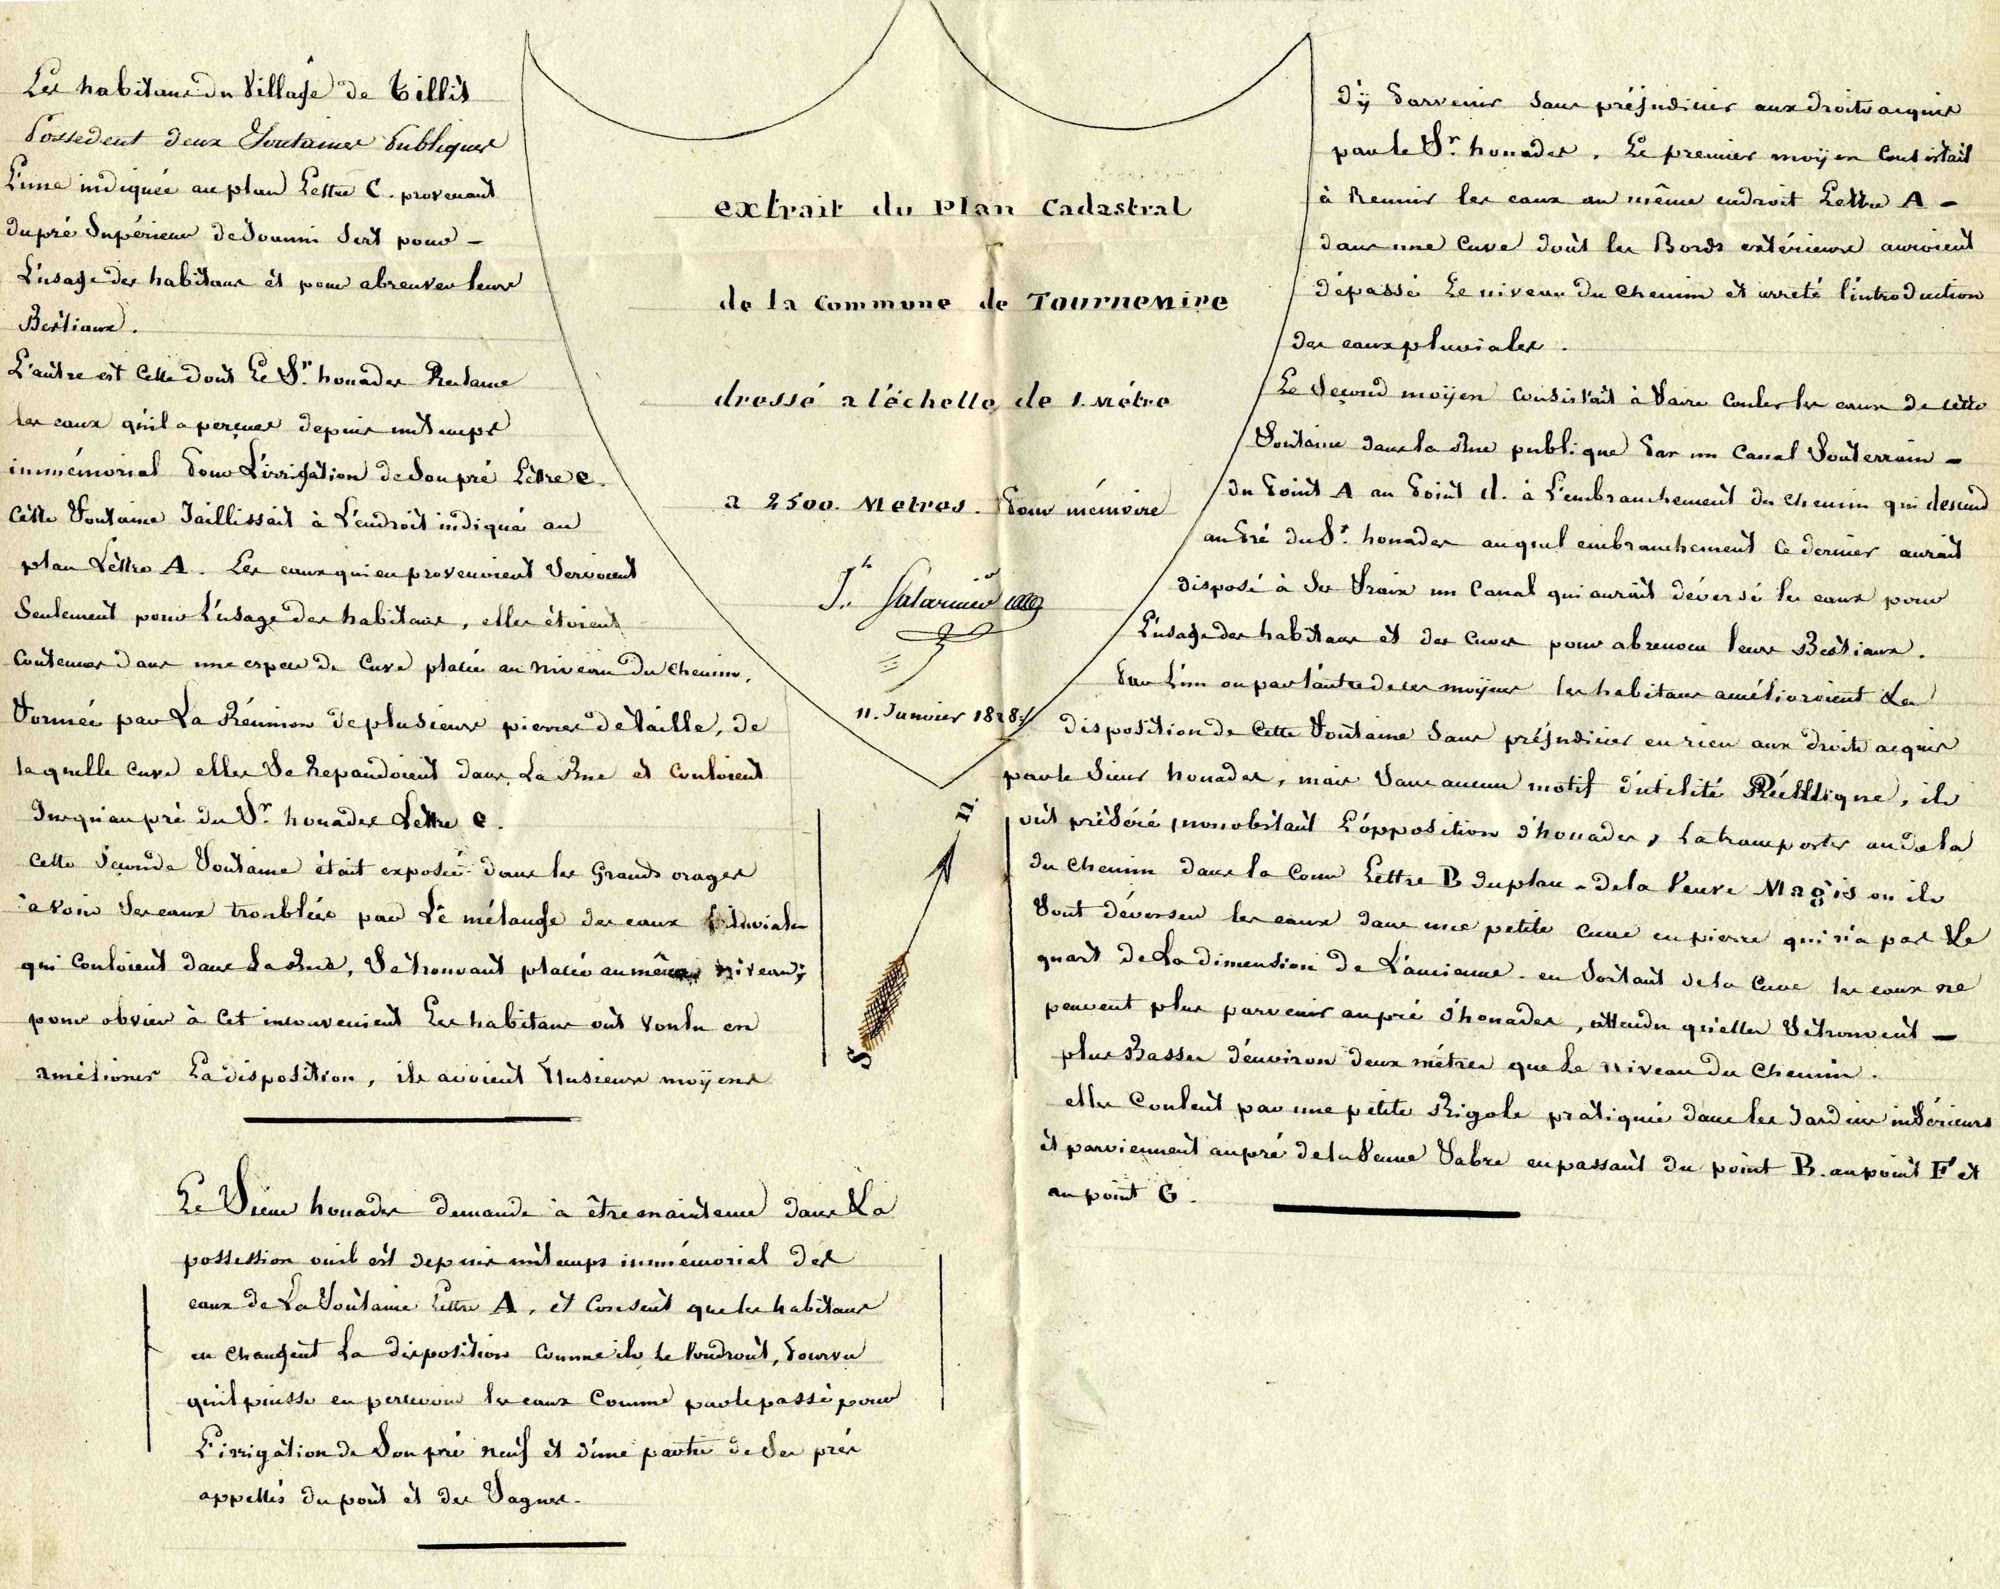 Les habitans du Village de Tillit
Possedent deux Fontaines Publiques
L'une indiquée au plan Lettre C. provenant
du pré Supérieur de Soumi Sert pour -
L'usage des habitans et pour abreuver leurs
Bestiaux.
L'autre est Celle dont Le Sr. houades Reclame
les eaux qu'il a perçues depuis un temps
immémorial Pour L'irrigation de Son pré Lettre e.
Cette Fontaine Jaillissait à L'endroit indiqué au
plan Lettre A. Les eaux qui en provenoient Servoient
Seulement pour L'usage des habitans, elles étoient
Contenues dans une espece de Cuve placée au niveau du chemin,
Formée par La Réunion de plusieurs pierres de taille, de
laquelle Cuve elles Se Repandoient dans La Rue et Couloient
Jusqu'au pré du Sr. houades Lettre e.
Cette Seconde Fontaine était exposée dans les Grands orages
a voir Ses eaux troublées par Le mélange des eaux Pluviales
qui Couloient dans La Rue, Se trouvant placée au même niveau;
pour obvier à Cet inconvenient Les habitans ont voulu en
améliorer La disposition, ils avoient Plusieurs moyens
Le Sieur houades demande à être maintenu dans La
possession ou il est depuis un temps immémorial des
eaux de La Fontaine Lettre A, et Consent que les habitans
en changent La disposition Comme ils le Voudront, Pourvu
qu'il puisse en percevoir les eaux Comme par le passé pour
L'irrigation de Son pré neuf et d'une partie de Ses prés
appellés du pont et des Vagnes.
extrait du Plan Cadastral
de la Commune de Tournemire
dressé a l'échelle de 1. Métre
a 2500. Metres. Pour mémoire
11. Janvier 1828.
n.
S
d'y Parvenir Sans préjudicier aux droits acquis
par le Sr. houades. Le premier moyen Consistait
à Reunir les eaux au même endroit Lettre A -
dans une Cuve dont les Bords extérieurs auroient
dépassé Le niveau du Chemin et arreté l'introduction
des eaux pluviales.
Le Second moyen Consistait à Faire Couler les eaux de cette
Fontaine dans la Rue publique Par un Canal Souterrain -
du Point A au Point d. à L'embranchement du Chemin qui descend
au Pré du Sr. houades auquel embranchement Ce dernier aurait
disposé à Ses Fraix un Canal qui aurait déversé les eaux pour
L'usage des habitans et des Cuves pour abreuver leurs Bestiaux.
Par L'un ou par l'autre de ces moyens les habitans amélioroient La
disposition de Cette Fontaine Sans préjudicier en rien aux droits acquis
par le Sieur houades, mais Sans aucun motif d'utilité Publique, ils
ont préféré, nonobstant L'opposition d'houades, La transporter au dela
du Chemin dans la Cour Lettre B du plan - de la Veuve Magis ou ils
Font déverser les eaux dans une petite Cuve en pierre qui n'a pas Le
quart de La dimension de L'ancienne - en Sortant de la Cuve les eaux ne
peuvent plus parvenir au pré d'houades, attendu qu'elles Se trouvent -
plus Basses d'environ deux métres que Le niveau du Chemin.
elles Coulent par une petite Rigole pratiquée dans les Jardins inférieurs
et parviennent au pré de la Veuve Fabre en passant du point B. au point F et
au point G.